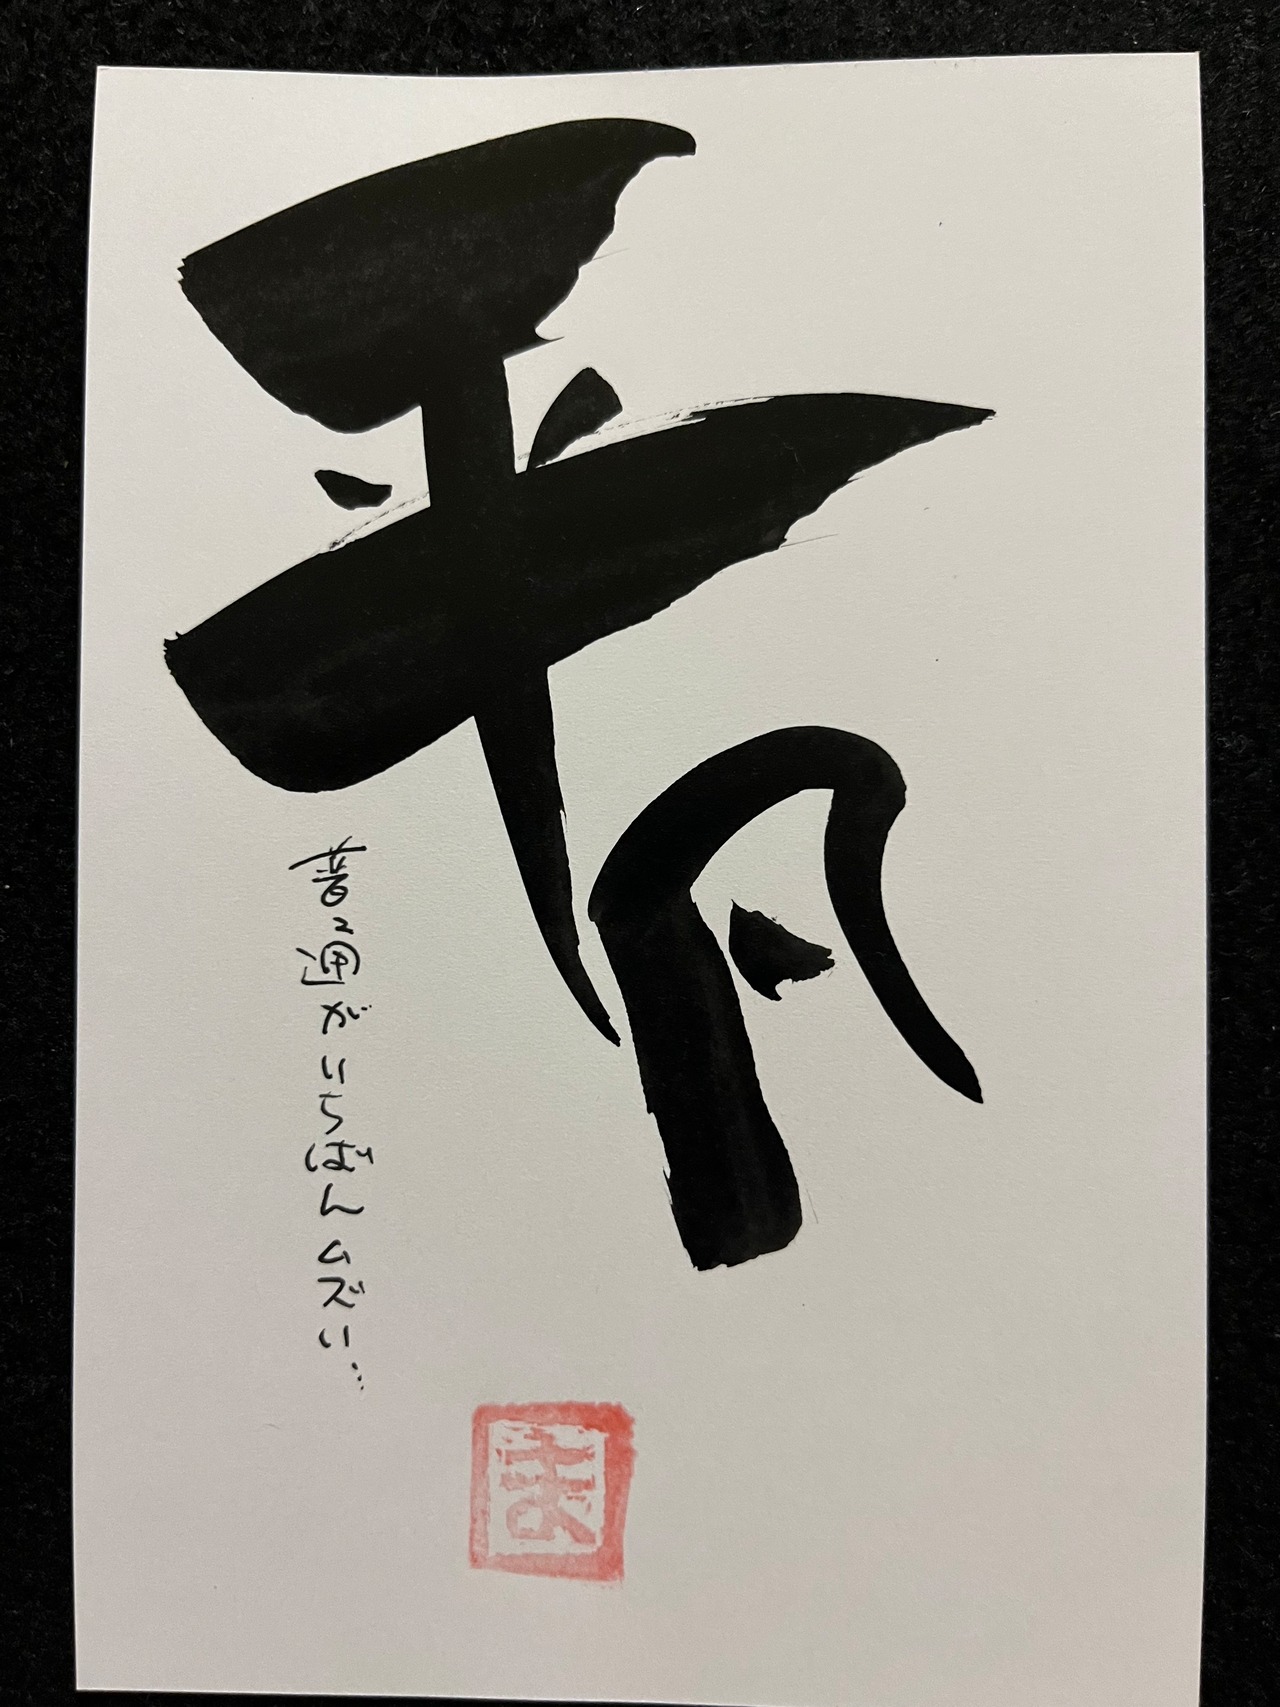 平凡
普通がいちばんムズい…